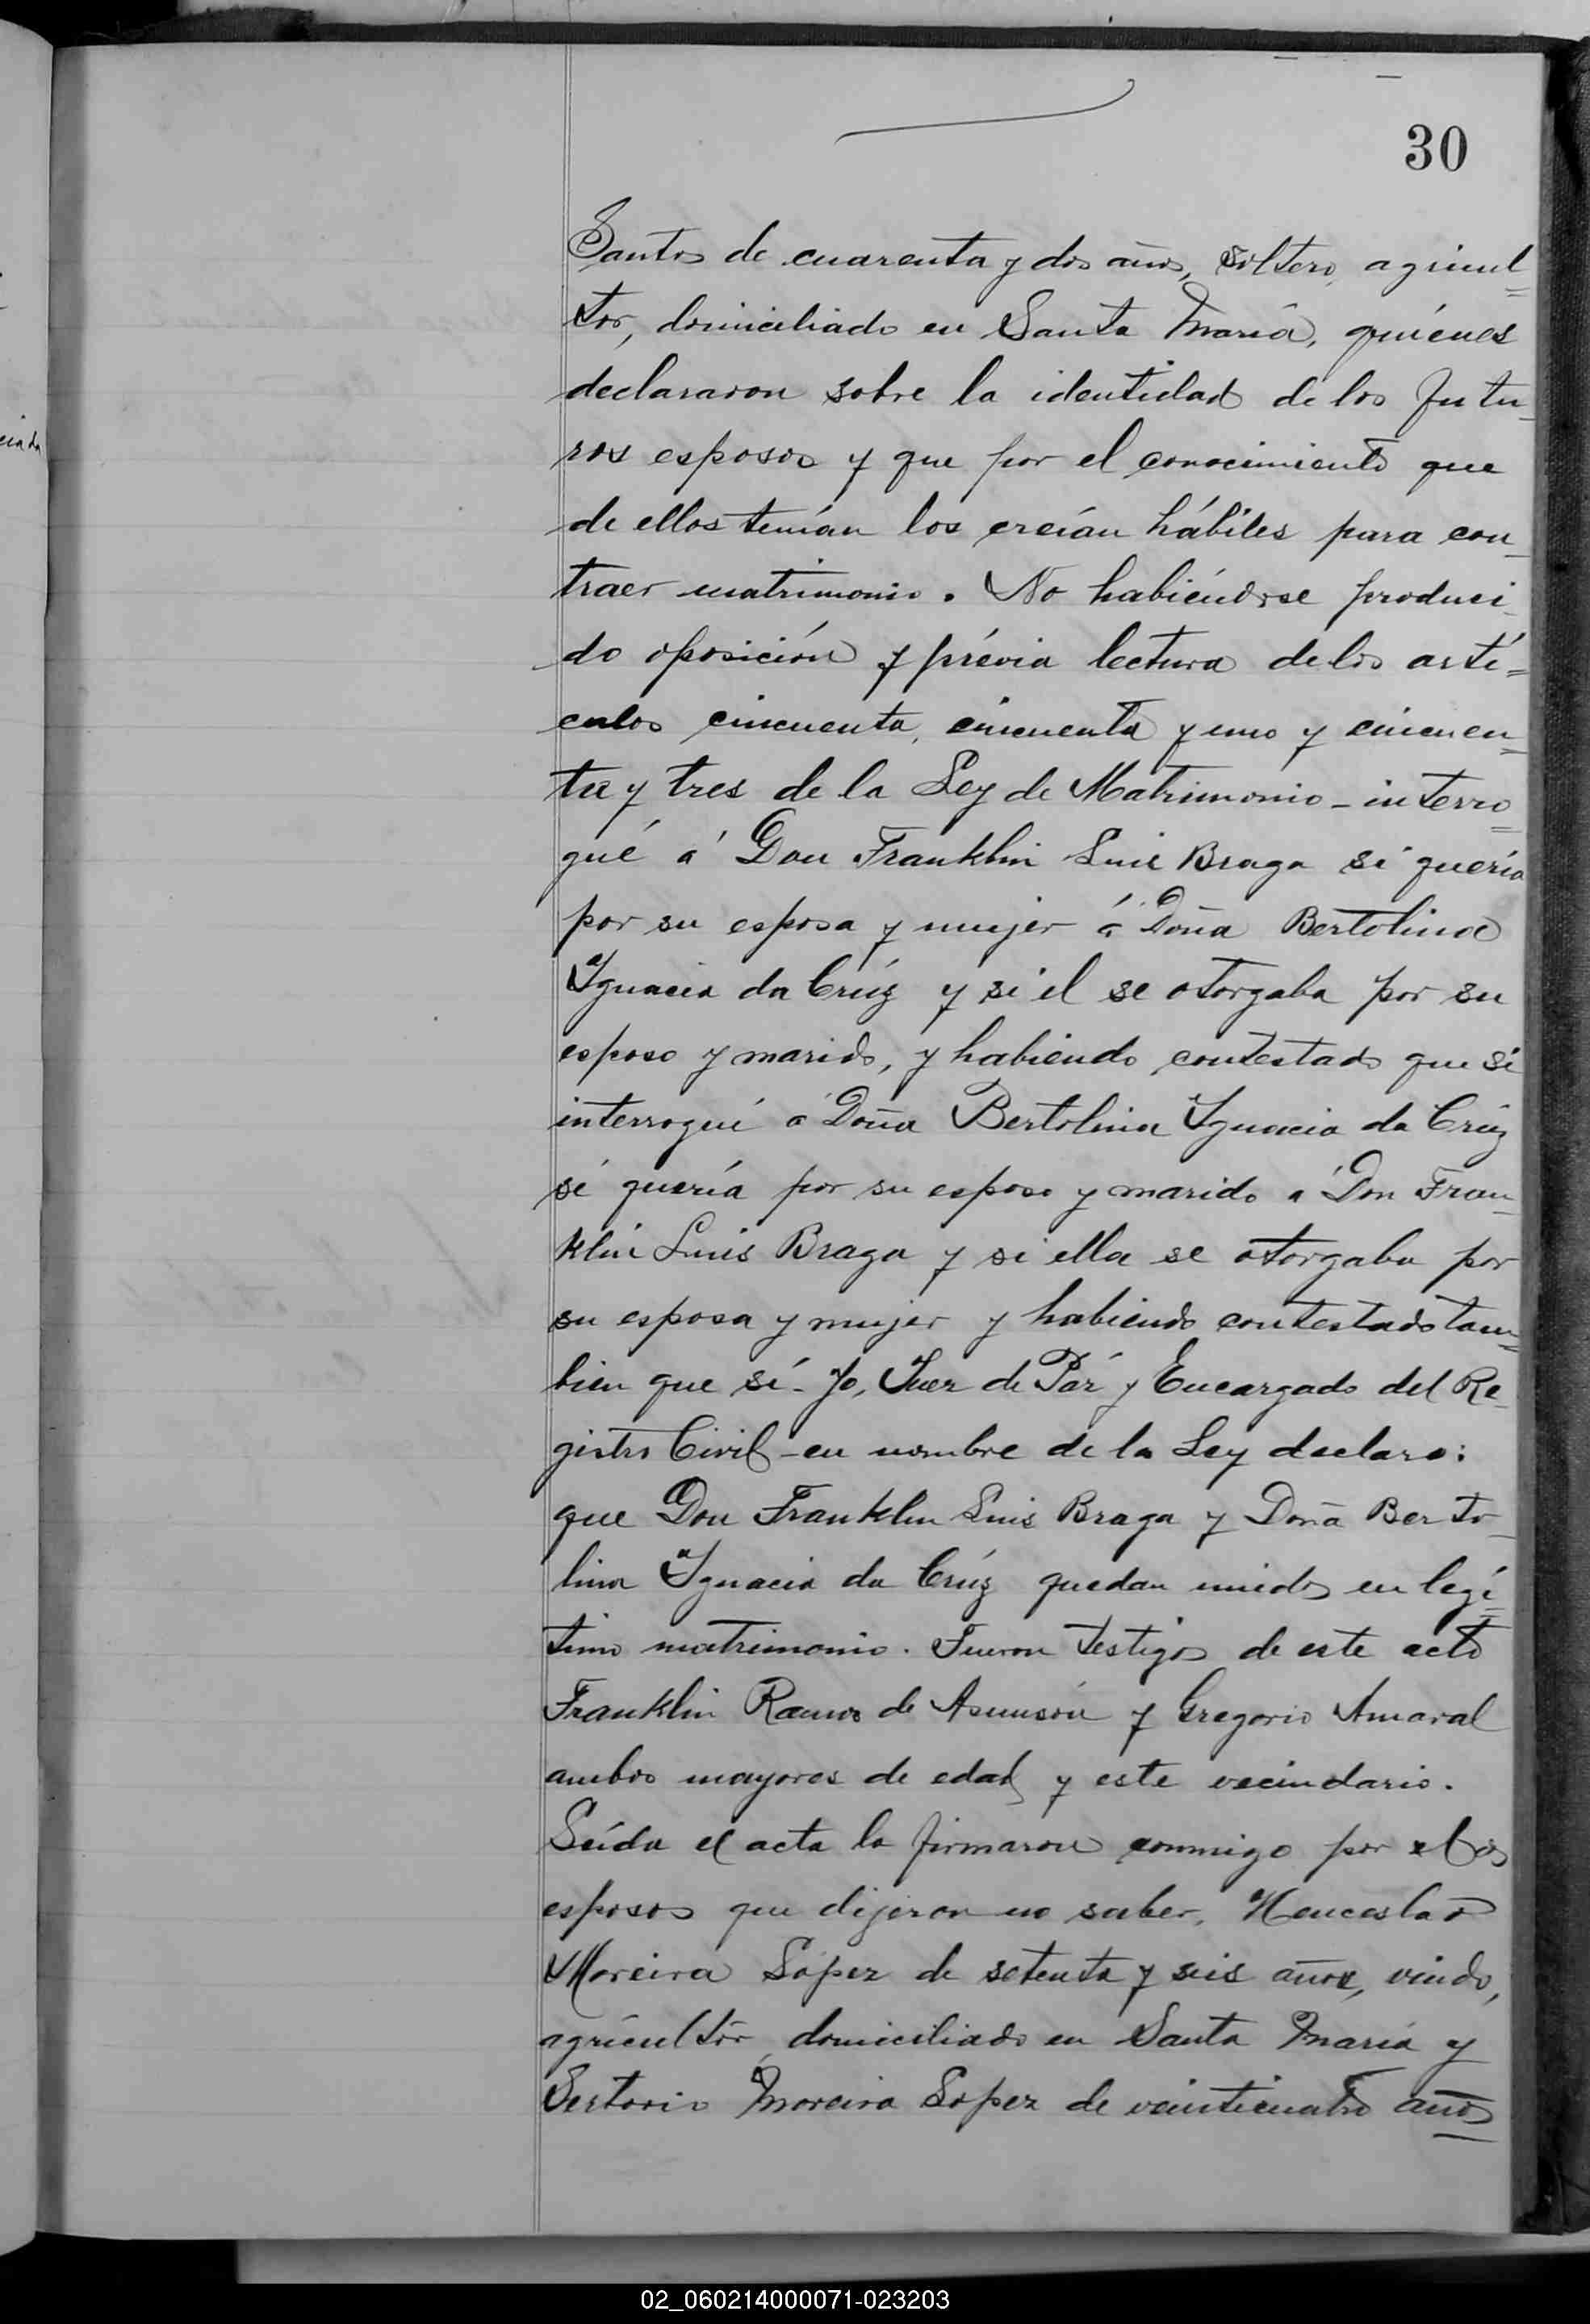 30
Santos de cuarenta y dos años, soltero, agricul=
tor, domiciliado en Santa María, quiénes
declararon sobre la identidad de los futu-
ros esposos y que por el conocimiento que
de ellos tenían los creían hábiles para con-
traer matrimonio. No habiéndose produci-
do oposición y prévia lectura de los artí=
culos cincuenta, cincuenta y uno y cincuen=
ta y tres de la Ley de Matrimonio - interro=
gué á Don Franklin Luis Braga si quería
por su esposa y mujer á Doña Bertolina
Ignacia da Crúz y si el se otorgaba por su
esposo y marido, y habiendo contestado que si
interrogué á Doña Bertolina Ignacia da Crúz
si quería por su esposo y marido á Don Fran-
klin Luis Braga y si ella se otorgaba por
su esposa y mujer y habiendo contestado tam=
bien que sí - Yo, Juez de Páz y Encargado del Re-
gistro Civil - en nombre de la Ley declaro:
que Don Franklin Luis Braga y Doña Berto-
lina Ignacia da Crúz quedan unidos en legí=
timo matrimonio. Fueron testigos de este acto
Franklin Ramos de Asunsón y Gregorio Amaral
ambos mayores de edad y este vecindario.
Leída el acta la firmaron conmigo por los
esposos que dijeron no saber, Wenceslao
Moreira López de setenta y seis años, viudo,
agricultor, domiciliado en Santa María y
Sertorio Moreira Lopez de veinticuatro años
02_060214000071-023203